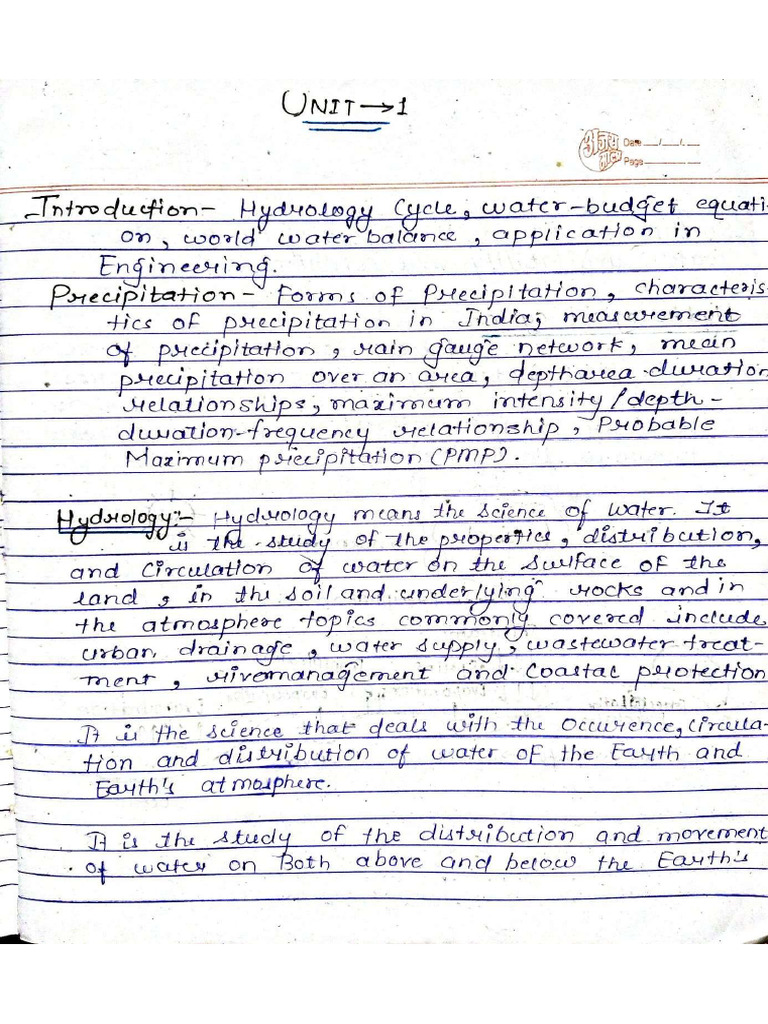 UNIT→1
Date __/__/__
Page
Introduction- Hydrology Cycle, water-budget equati-
on, world water balance, application in
Engineering.
Precipitation- Forms of Precipitation, characteris-
tics of precipitation in India, measurement
of precipitation, rain gauge network, mean
precipitation over an area, deptharea-duration
relationships, maximum intensity/depth-
duration-frequency relationship, Probable
Maximum precipitation (PMP).
Hydrology:- Hydrology means the science of water. It
is the study of the properties, distribution,
and Circulation of water on the surface of the
land, in the soil and underlying rocks and in
the atmosphere topics commonly covered include
urban drainage, water supply, wastewater treat-
ment, rivermanagement and Coastal protection
It is the science that deals with the Occurence, Circula-
tion and distribution of water of the Earth and
Earth's atmosphere.
It is the study of the distribution and movement
of water on Both above and below the Earth's